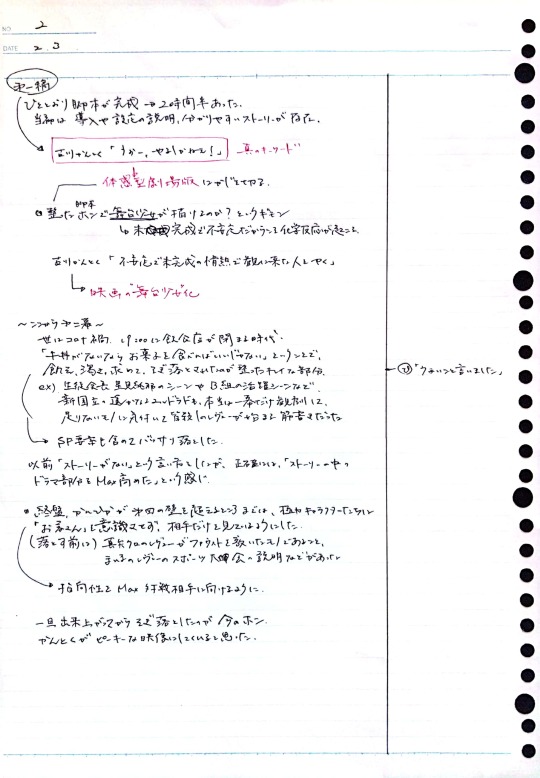 NO 2
DATE 2. 3
第一稿
ひととおり脚本が完成→2時間半あった。
当初は導入や設定の説明、分かりやすいストーリーが存在。
古川かんとく「うわー、やましかねて!」真のキーワード
体感型劇場版に
脚本
整ったホンで舞台少女が描けるのか?というギモン
↳未完成で不安定だからこそ化学反応が起こる
古川かんとく「不安定で未完成の情熱で観に来た人しやく」
↳映画の舞台少女化
〜ここから第二幕〜
世はコロナ禍、19:00に飲食店が閉まる時代。
「本料がないならお菓子を食べればいいじゃない」というシーンで、
飲む、渇き、求めて、そぎ落とされたのが整ったキレイな部分。
ex) 生徒会長 星見純那のシーンやB組の活躍シーンなど。
新国立の遥かなるエルドラドも、本当は一番だけ観劇して、
足りないモノに気付いて皆殺しのレヴューが始まる解答だった
→SP音楽も含めてバッサリ落とした。
⑦「ウまいこと言いました」
以前「ストーリーがない」という言い方したが、正確には、「ストーリーの中の
ドラマ部分をMax高めた」という感じ。
終盤、かれひかが第四の壁を超えるところまでは、極力キャラクターたちに
「お客さん」を意識させず、相手だけを見ているようにした。
(落とす前は) 真矢クロのレヴューがファウストを敷いたモノであること、
まひるのレヴューのスポーツ大会の説明などがあった
→指向性をMax対戦相手に向けるように。
一旦出来上がってからそぎ落としたのが今のホン。
かんとくがピーキーな映像にしてくれると思った。